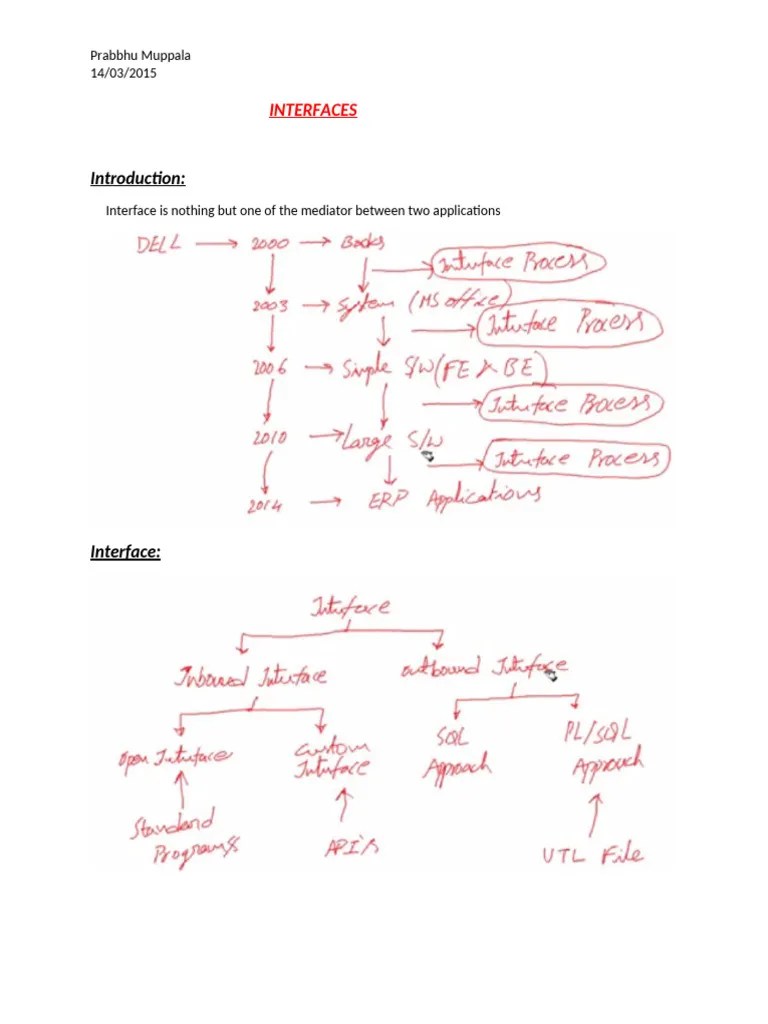 Prabbhu Muppala
14/03/2015
INTERFACES
Introduction:
Interface is nothing but one of the mediator between two applications
DELL → 2000 → Books
Interface Process
2003 → System (MS office)
Interface Process
2006 → Simple S/W (FE & BE)
Interface Process
2010 → Large S/W
Interface Process
2014 → ERP Applications
Interface:
Interface
Inbound Interface outbound Interface
open Interface custom Interface SQL Approach PL/SQL Approach
Standard Programs API's UTL File